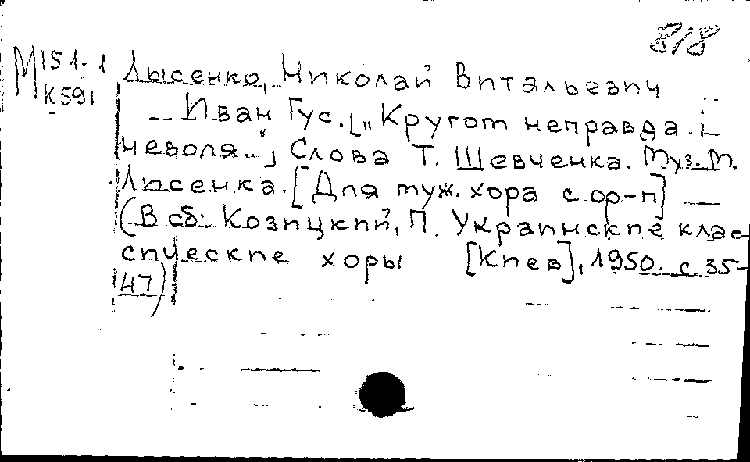 818
М151-1
К591
Лысенко, Николай Витальевич
Иван Гус. [„Кругом неправда і
неволя..."] Слова Т. Шевченка. Муз. М.
Лисенка. [Для муж. хора с ор-п]
(В сб: Козицкий, П. Украинские клас-
сические хоры [Киев], 1950. с. 35-
47)